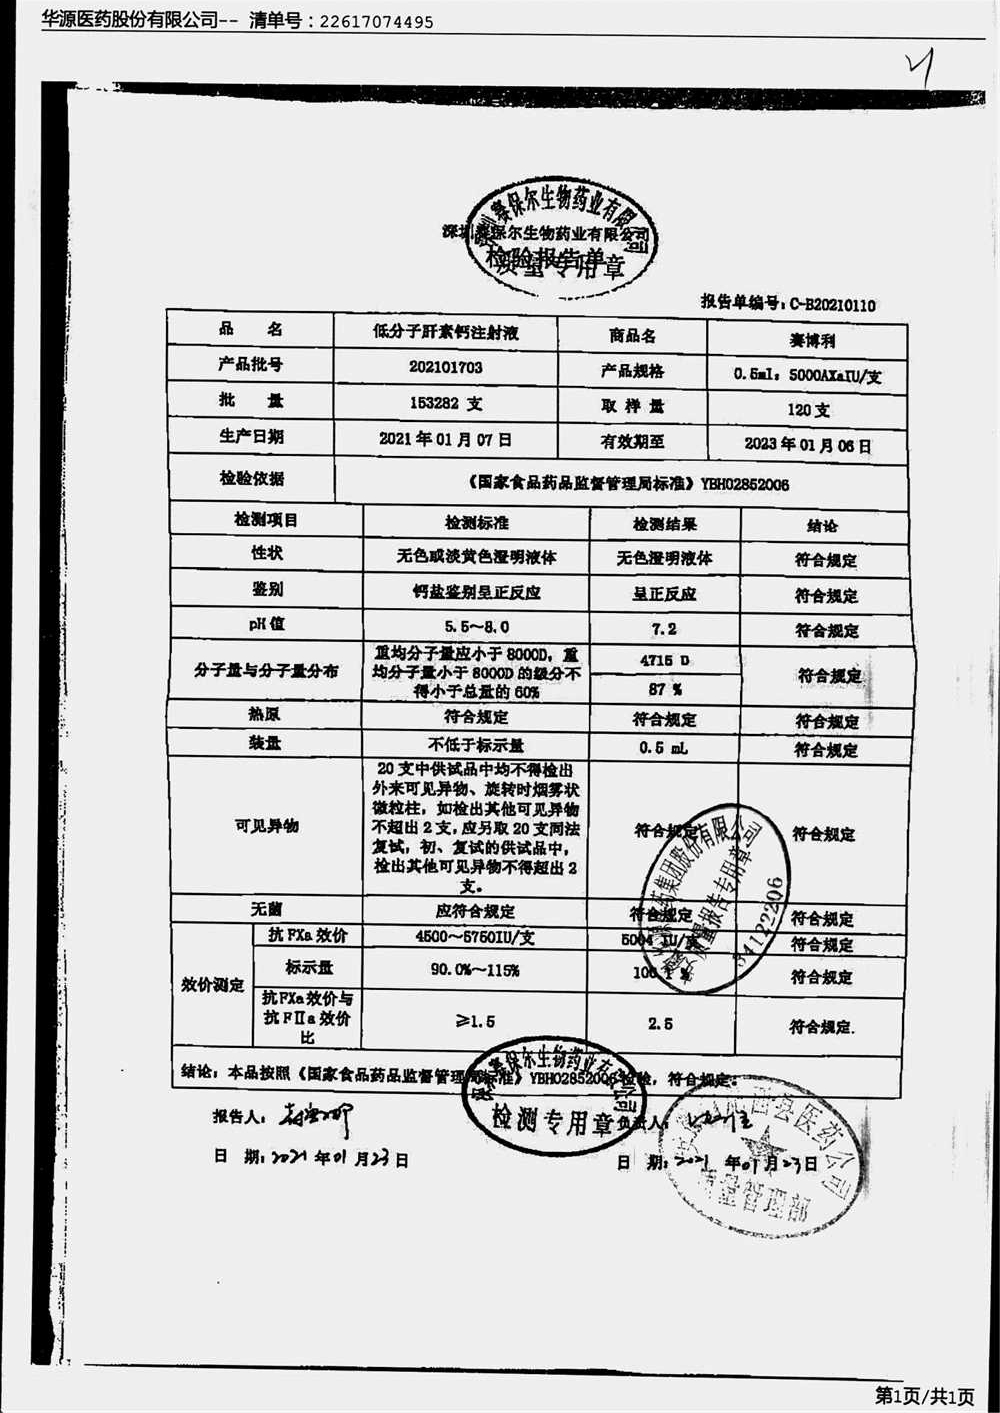 华源医药股份有限公司-- 清单号：22617074495
深圳赛保尔生物药业有限公司
检验报告单
质量专用章
报告单编号：C-B20210110
品 名 低分子肝素钙注射液 商品名 赛博利
产品批号 202101703 产品规格 0.5ml：5000AXaIU/支
批 量 153282 支 取 样 量 120支
生产日期 2021 年 01 月 07 日 有效期至 2023 年 01 月 06 日
检验依据 《国家食品药品监督管理局标准》YBH02852006
检测项目 检测标准 检测结果 结论
性状 无色或淡黄色澄明液体 无色澄明液体 符合规定
鉴别 钙盐鉴别呈正反应 呈正反应 符合规定
pH 值 5.5～8.0 7.2 符合规定
分子量与分子量分布 重均分子量应小于 8000D，重
均分子量小于 8000D 的级分不
得小于总量的 60%
4715 D
87 %
符合规定
热原 符合规定 符合规定 符合规定
装量 不低于标示量 0.5 mL 符合规定
可见异物
20 支中供试品中均不得检出
外来可见异物、旋转时烟雾状
微粒柱，如检出其他可见异物
不超出 2 支，应另取 20 支同法
复试，初、复试的供试品中，
检出其他可见异物不得超出 2
支。
符合规定 符合规定
无菌 应符合规定 符合规定 符合规定
效价测定
抗 FXa 效价 4500～5750IU/支 5004 IU/支 符合规定
标示量 90.0%～115% 100.1 % 符合规定
抗FXa效价与
抗FⅡa效价
比
≥1.5 2.5 符合规定.
结论：本品按照《国家食品药品监督管理局标准》YBH02852006检验，符合规定。
检测专用章
报告人： 负责人：
日 期：2021 年 01 月 23 日 日 期：2021 年 01 月 23 日
质量管理部
第1页/共1页